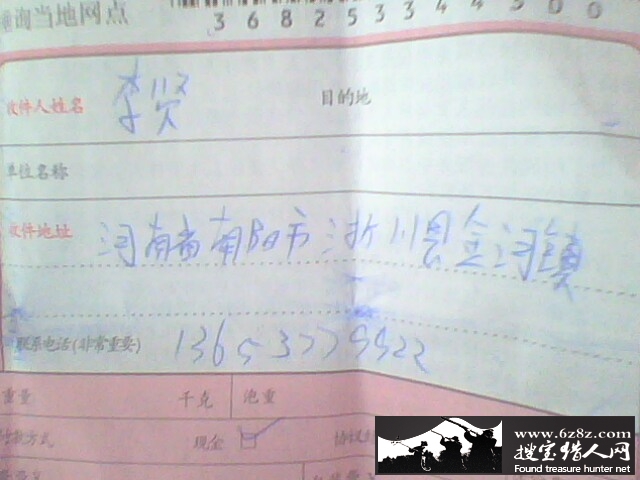 询当地网点
3 6 8 2 5 3 3 4 4 5 0 0
收件人姓名 李贤 目的地
单位名称
收件地址 河南省南阳市淅川县金河镇
联系电话(非常重要) 13653779922
重量 千克 泡重
付款方式 现金
www.6z8z.com
搜宝猎人网
Found treasure hunter net